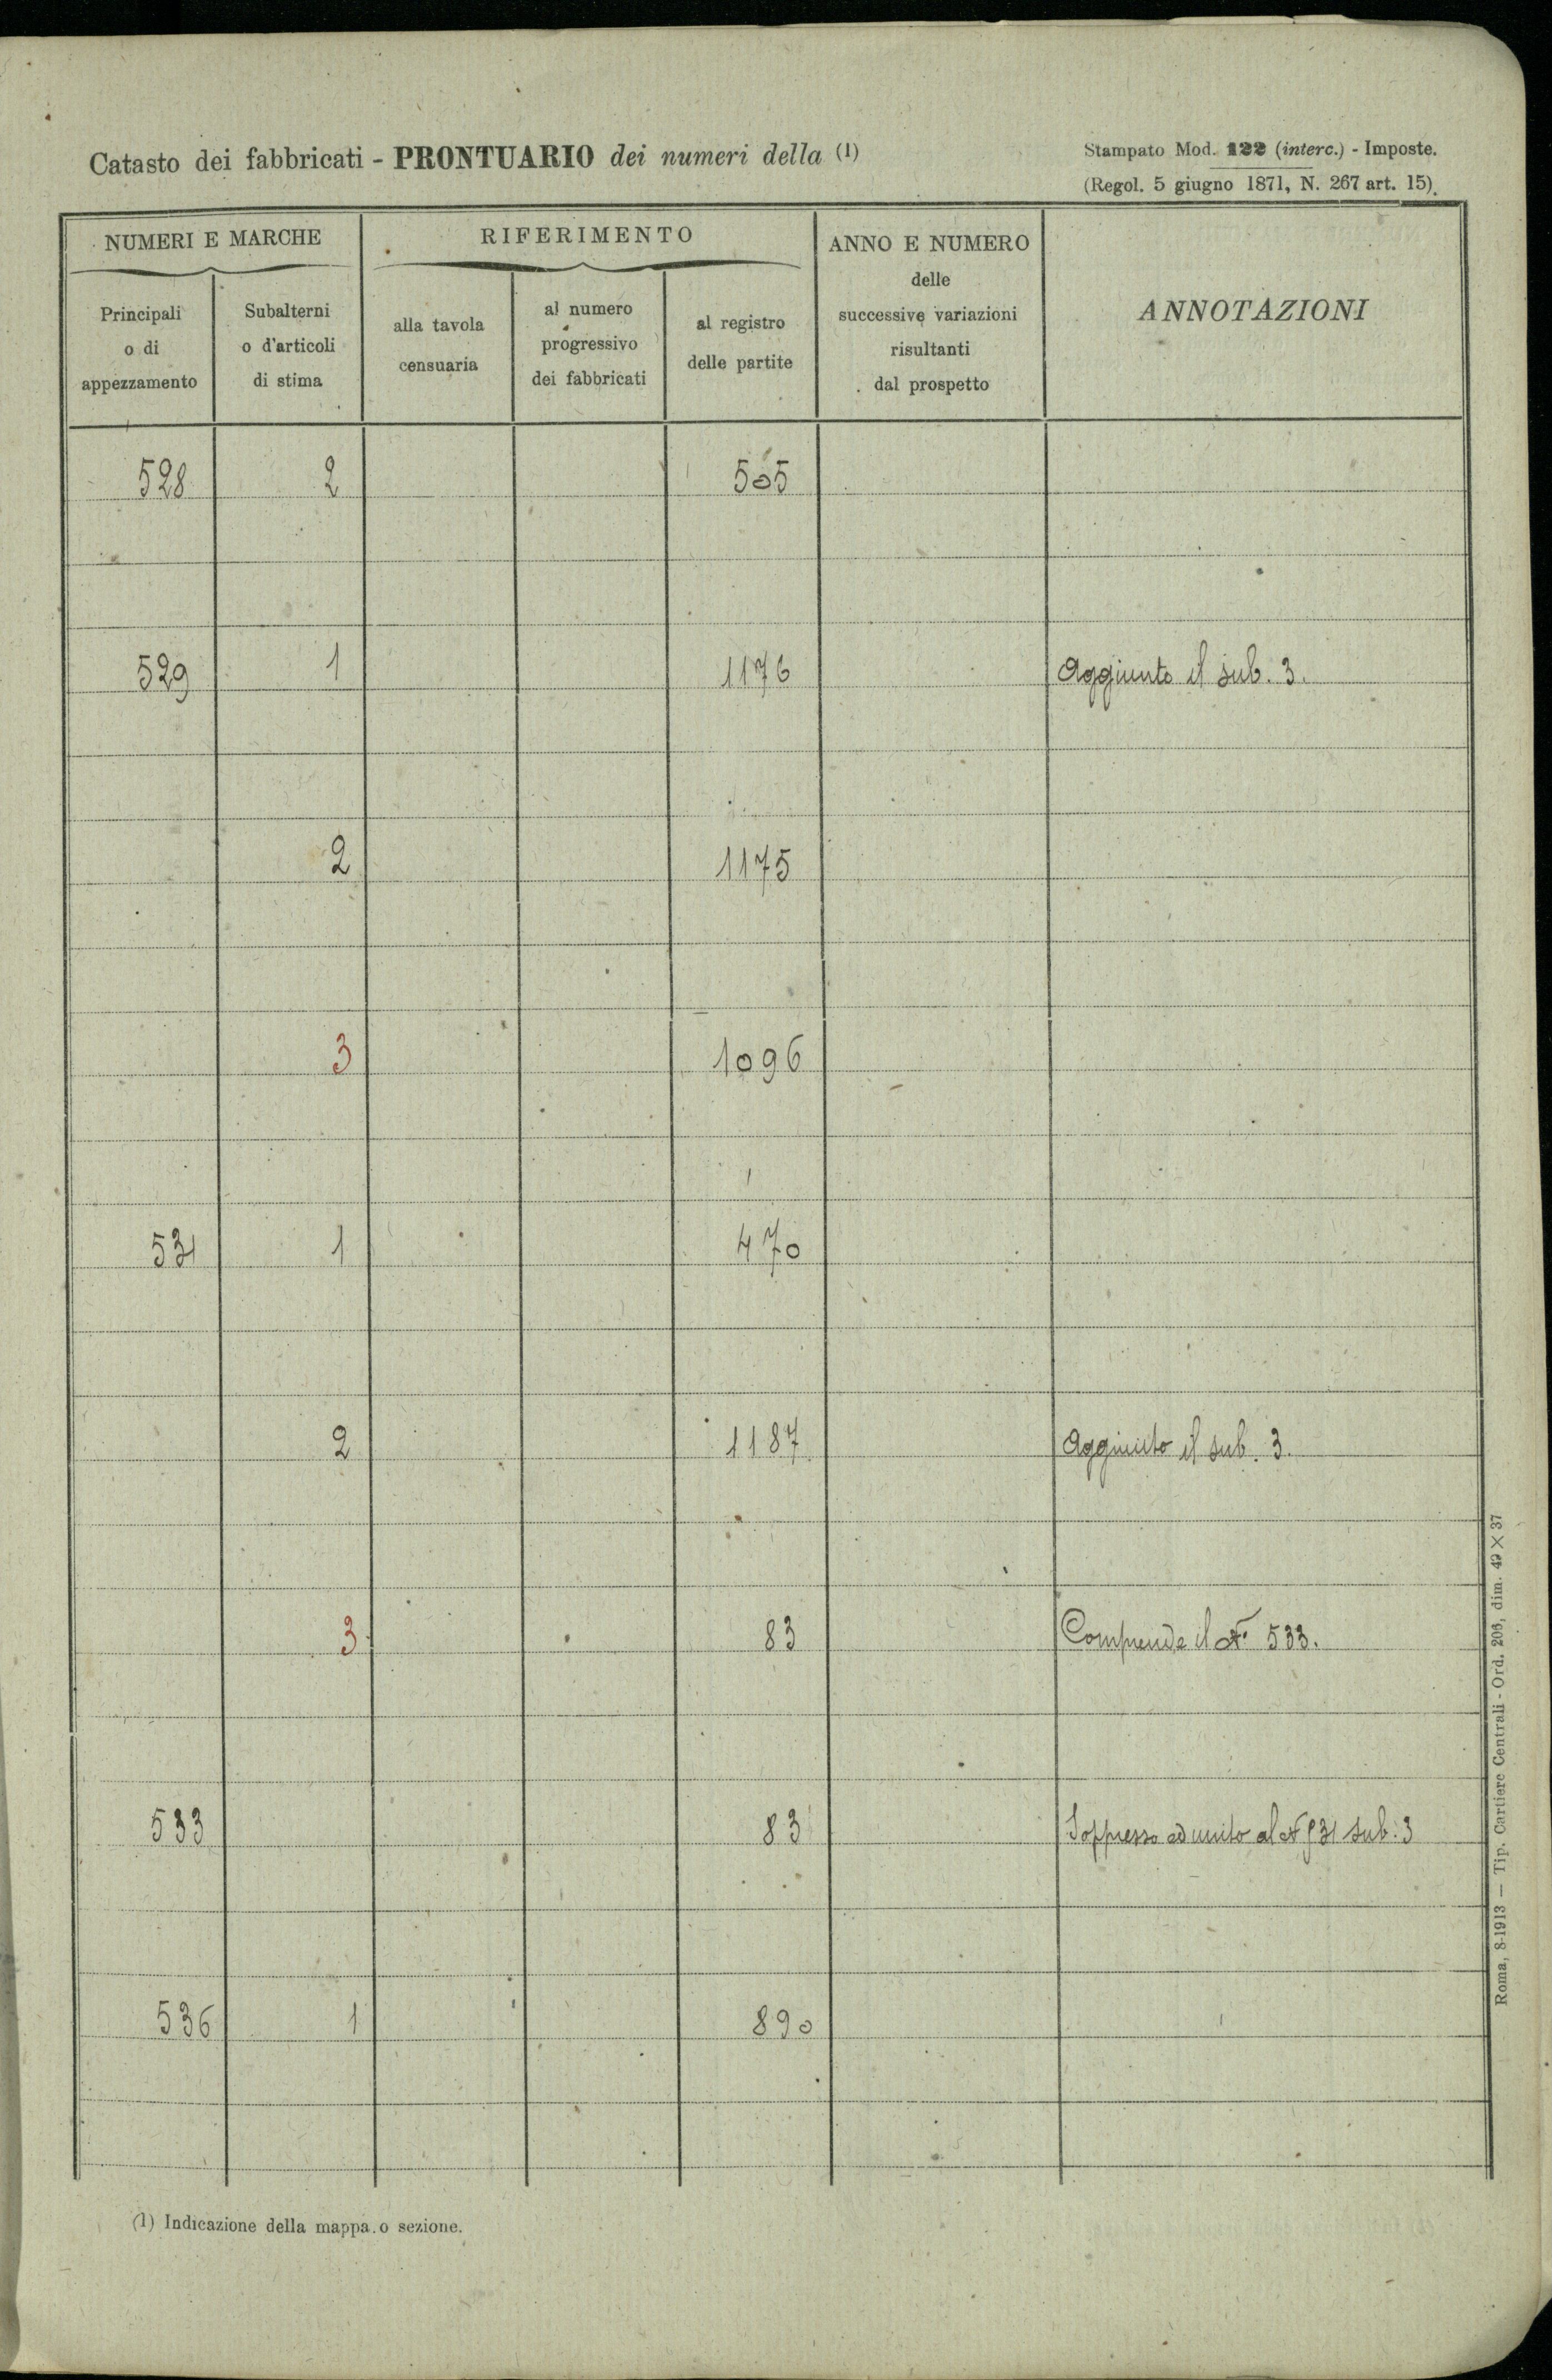 Catasto dei fabbricati - PRONTUARIO dei numeri della (1)
Stampato Mod. 122 (interc.) - Imposte.
(Regol. 5 giugno 1871, N. 267 art. 15).
NUMERI E MARCHE
RIFERIMENTO
ANNO E NUMERO
delle
successive variazioni
risultanti
dal prospetto
ANNOTAZIONI
Principali
o di
appezzamento
Subalterni
o d'articoli
di stima
alla tavola
censuaria
al numero
progressivo
dei fabbricati
al registro
delle partite
528 2 505
529 1 1176 Aggiunto il sub. 3.
2 1175
3 1096
531 1 470
2 1187 Aggiunto il sub. 3.
3 83 Comprende il N. 533.
533 83 Soppresso ed unito al N 531 sub. 3
536 1 890
(1) Indicazione della mappa o sezione.
Roma, 8-1913 — Tip. Cartiere Centrali - Ord. 206, dim. 49 × 37